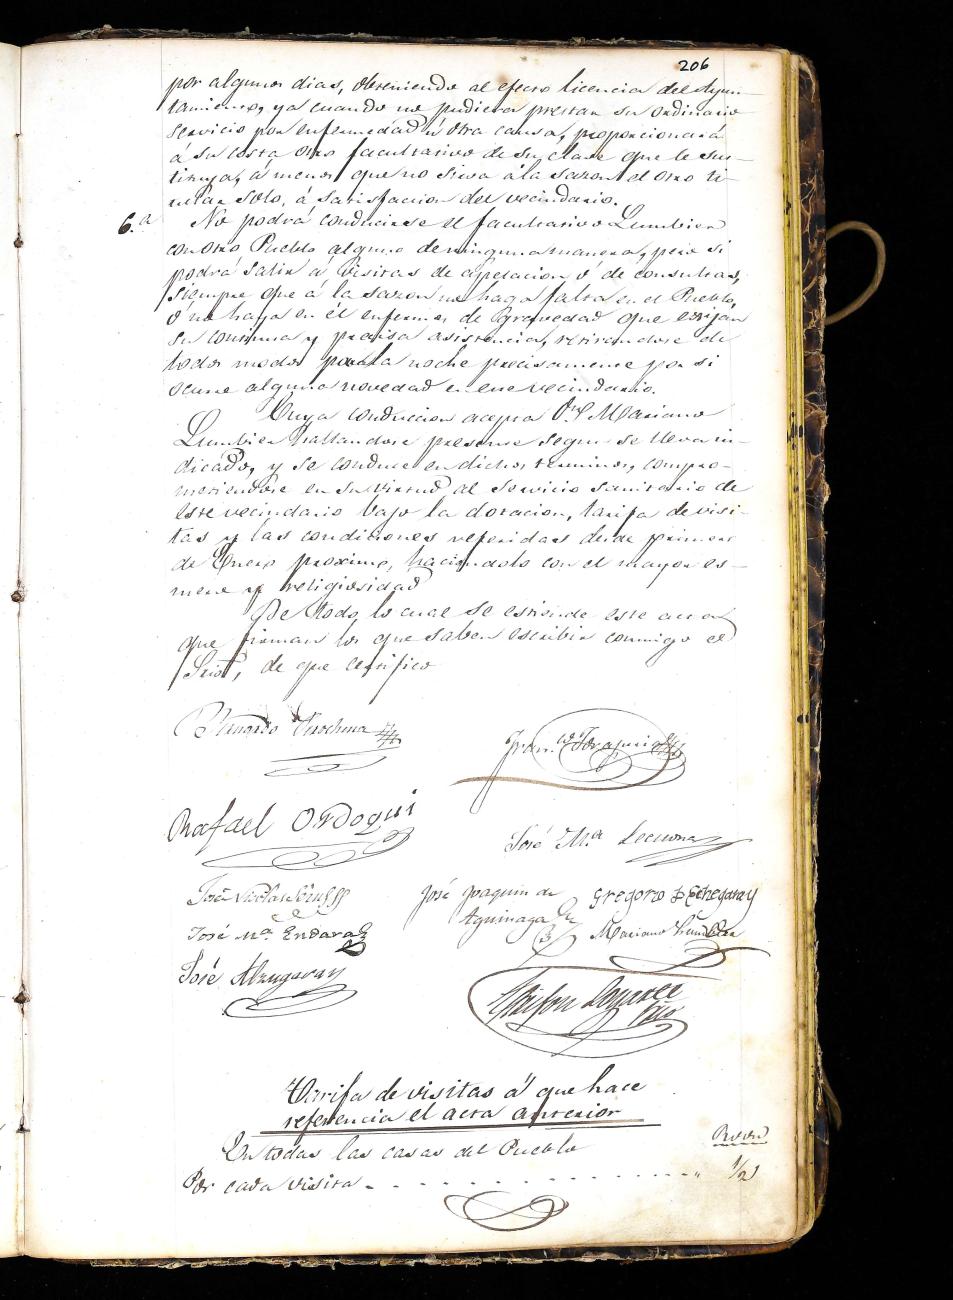 206
por algunos dias, obteniendo al efecto licencia del Ayun-
tamiento, ya cuando no pudiera prestar su ordinario
servicio por enfermedad ú otra causa, proporcionará
á su costa otro facultativo de su clase que le sus-
tituya, á menos que no sirva á la sazon el otro ti-
tular solo, á satisfaccion del vecindario.
6.a No podrá conducirse el facultativo Lumbier
con otro Pueblo alguno de ninguna manera, pero si
podrá salir á visitas de apelacion ó de consultas,
siempre que á la sazon no haga falta en el Pueblo,
ó no haya en él enfermos de gravedad que exijan
su continua y precisa asistencia, retirandose de
todos modos para la noche precisamente por si
ocurre alguna novedad en este vecindario.
Cuya conduccion acepta Dn. Mariano
Lumbier hallandose presente segun se lleva in-
dicado, y se conduce en dichos terminos, compro-
metiendose en su virtud al servicio sanitario de
este vecindario bajo la dotacion, tarifa de visi-
tas y las condiciones referidas desde primero
de Enero proximo, haciendolo con el mayor es-
mero y religiosidad
De todo lo cual se estiende este acta
que firman los que saben escribir conmigo el
Srio, de que certifico
Bernardo
Rafael Ordoqui
José Ma Lecuona
José Joaquin de
Aguinaga
Gregorio de Echegaray
José Ma Endara
Mariano Lumbier
José Alzugaray
Tarifa de visitas á que hace
referencia el acta anterior
En todas las casas del Pueblo
Por cada visita - - - - - - - - - - " 1/2